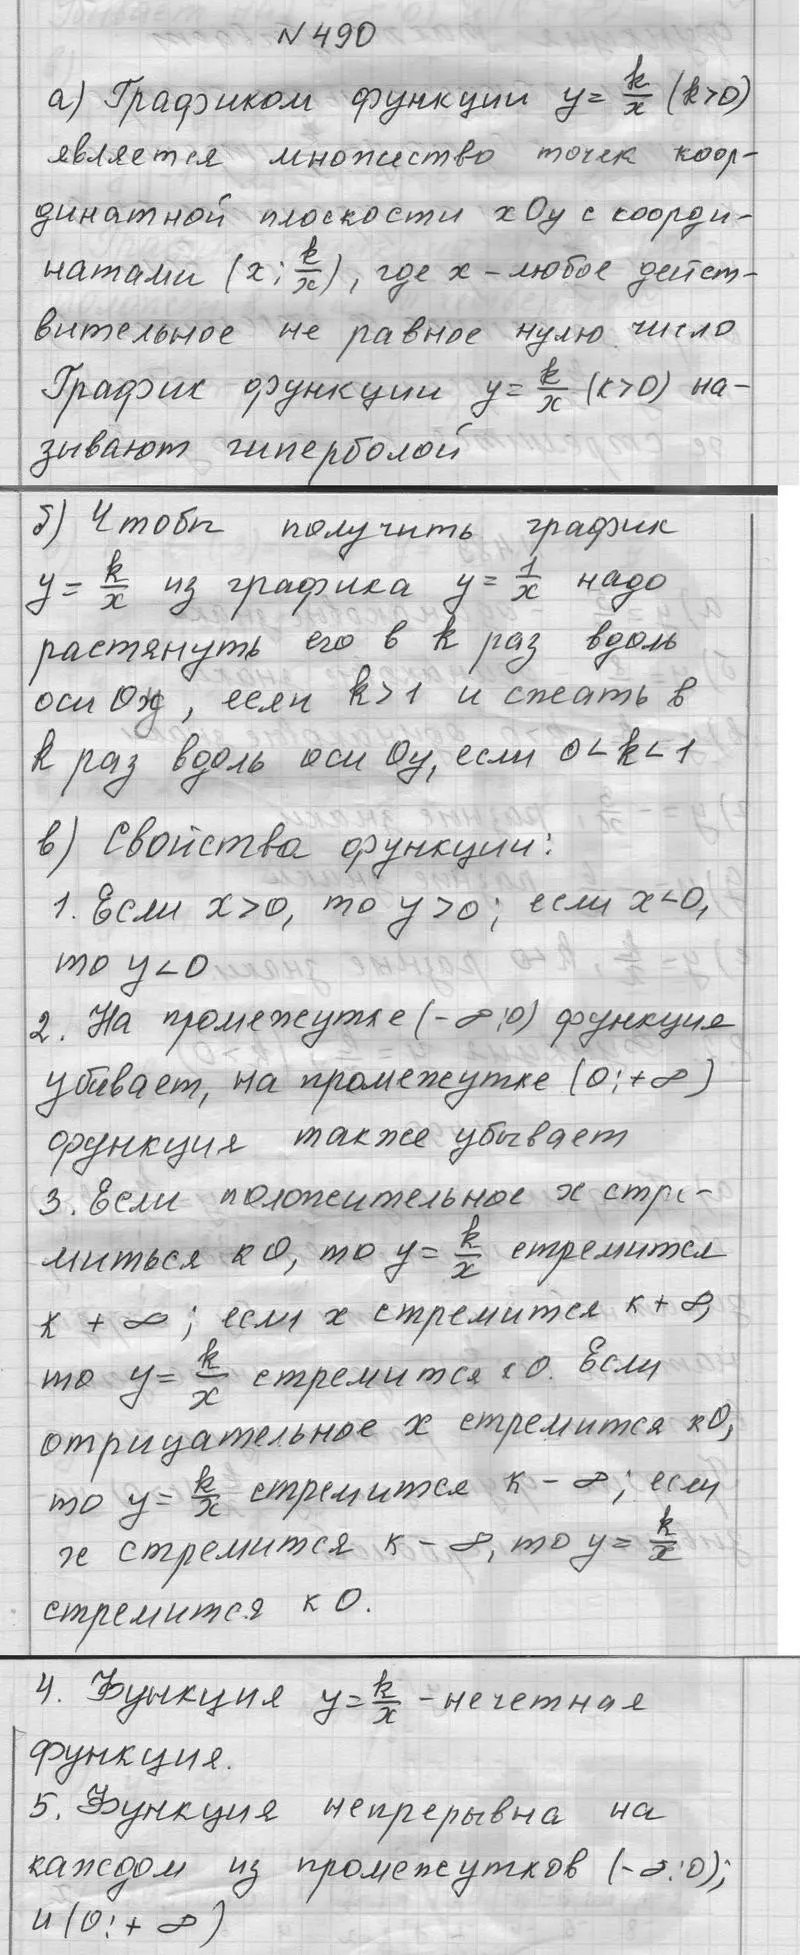 N 490
а) Графиком функции y = k/x (k>0)
является множество точек коор-
динатной плоскости xOy с коорди-
натами (x; k/x), где x – любое дейст-
вительное не равное нулю число
График функции y = k/x (k>0) на-
зывают гиперболой
б) Чтобы получить график
y = k/x из графика y = 1/x надо
растянуть его в k раз вдоль
оси Oy, если k>1 и сжать в
k раз вдоль оси Oy, если 0<k<1
в) Свойства функции:
1. Если x>0, то y>0; если x<0,
то y<0
2. На промежутке (-∞;0) функция
убивает, на промежутке (0;+∞)
функция также убывает
3. Если положительное x стре-
миться к 0, то y = k/x стремится
к +∞; если x стремится к +∞,
то y = k/x стремится к 0. Если
отрицательное x стремится к 0,
то y = k/x стремится к -∞; если
x стремится к -∞, то y = k/x
стремится к 0.
4. Функция y = k/x – нечетная
функция.
5. Функция непрерывна на
каждом из промежутков (-∞;0);
и (0;+∞)